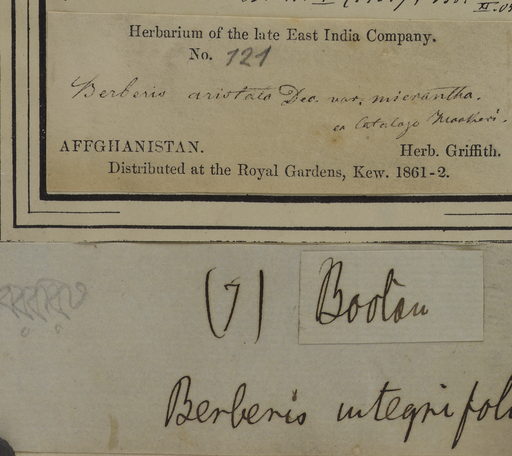 Herbarium of the late East India Company.
No. 121
Berberis aristata Dec. var. micrantha.
ex Catalogo Hookeri.
AFFGHANISTAN. Herb. Griffith.
Distributed at the Royal Gardens, Kew. 1861-2.
(7) Bootan
Berberis integrifol